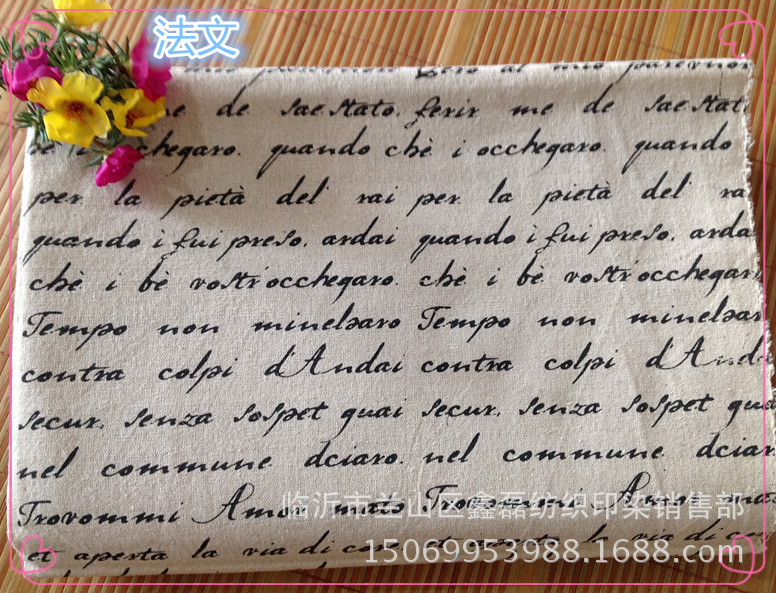 法文
de saestato, ferir me de saestat
chegaro. quando chè i occhegaro. quando
per la pietà del rai per la pietà del ra
quando i fui preso, ardai quando i fui preso, arda
chè i bè vostri occhegaro. chè i bè vostri occhegar
Tempo non minelsaro Tempo non minelsar
contra colpi d'Andai contra colpi d'Anda
secur, senza sospet guai secur, senza sospet gua
nel commune dciaro. nel commune dciar
Trovommi Amor mato Trovommi Amor mat
et aperta la via di core et aperta la via di
临沂市兰山区鑫磊纺织印染销售部
15069953988.1688.com